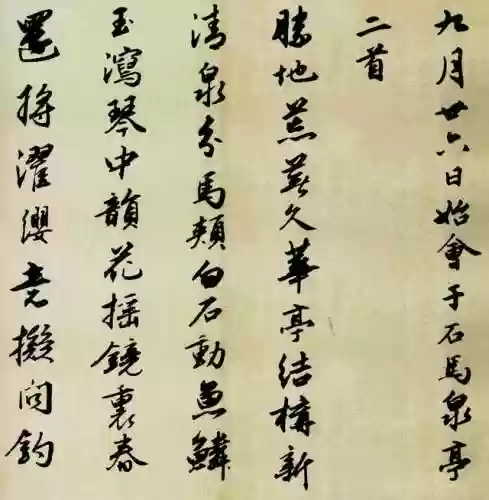 九月廿六日始會于石馬泉亭
二首
勝地荒蕪久華亭結搆新
清泉分馬頰白石動魚鱗
玉瀉琴中韻花搖鏡裏春
還將濯纓意擬向釣